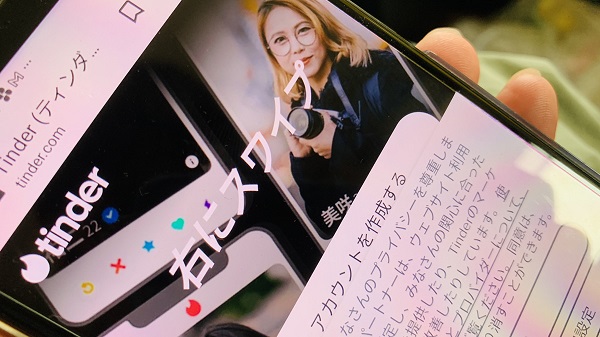 Tinder (ティンダ...
tinder.com
tinder
22
右にスワイプ
美咲
アカウントを作成する
なさんのプライバシーを尊重しま
パートナーは、ウェブサイト利用
定し、みなさんの関心に合った
提供したり、Tinderのマーケ
改善したりしています。使
とプロバイダーについて、
覧ください。同意は、
り消すことができます。
設定